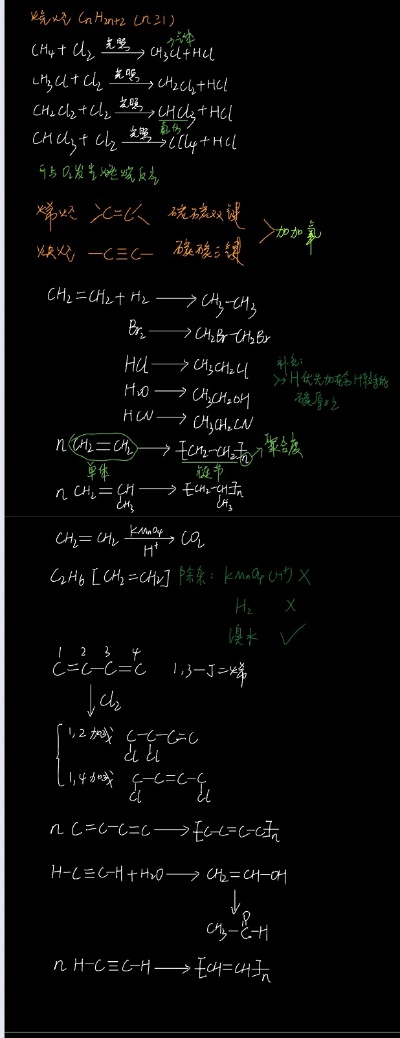 烷烃 CnH2n+2 (n≥1)
CH4 + Cl2 —光照→ CH3Cl + HCl 气体
CH3Cl + Cl2 —光照→ CH2Cl2 + HCl
CH2Cl2 + Cl2 —光照→ CHCl3 + HCl
CHCl3 + Cl2 —光照→ CCl4 + HCl
可与O2发生燃烧反应
烯烃 >C=C< 碳碳双键
炔烃 —C≡C— 碳碳三键
> 加加氧
CH2=CH2 + H2 → CH3-CH3
Br2 → CH2Br-CH2Br
HCl → CH3CH2Cl
H2O → CH3CH2OH
HCN → CH3CH2CN
H优先加在含H较多的
碳原子上
n CH2=CH2 → [CH2-CH2]n → 聚合度
单体 链节
n CH2=CH → [CH2-CH]n
CH3 CH3
CH2=CH2 —KMnO4/H+→ CO2
C2H6 [CH2=CH2] 除杂: KMnO4(H+) ×
H2 ×
溴水 ✓
1 2 3 4
C=C-C=C 1,3-丁二烯
↓Cl2
1,2加成 C-C-C=C
Cl Cl
1,4加成 C-C=C-C
Cl Cl
n C=C-C=C → [C-C=C-C]n
H-C≡C-H + H2O → CH2=CH-OH
↓
O
CH3-C-H
n H-C≡C-H → [CH=CH]n